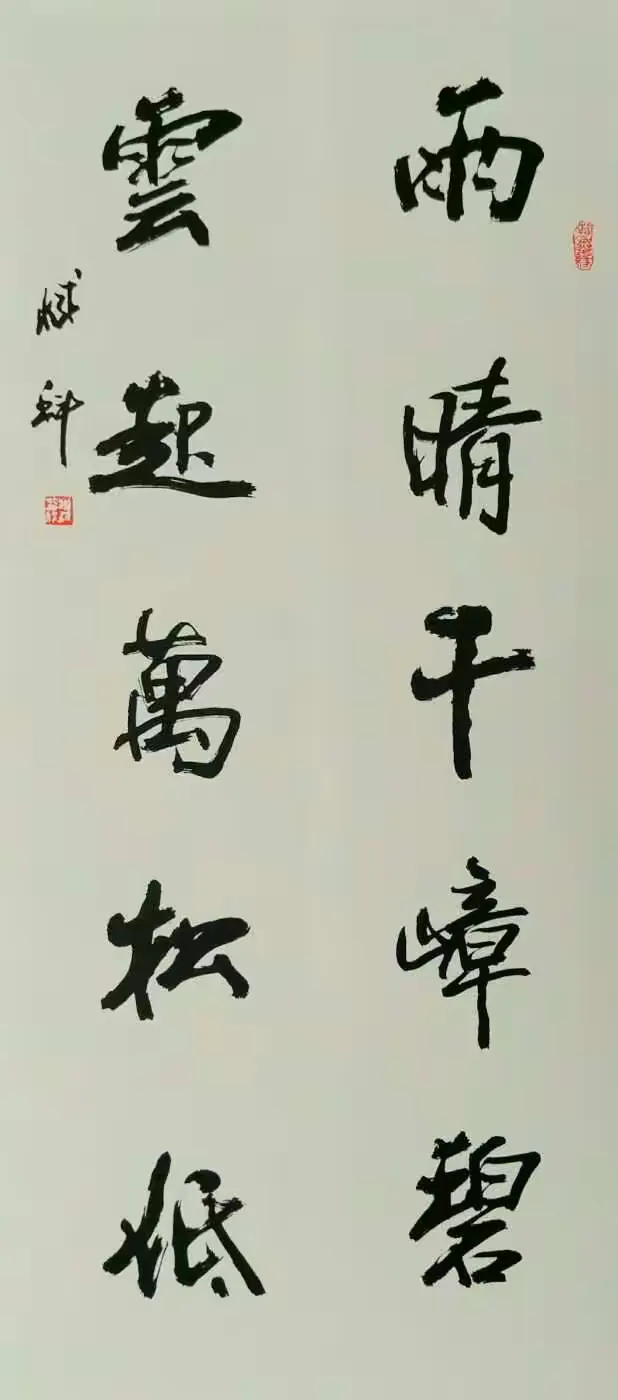 雨晴千嶂碧
雲起萬松低